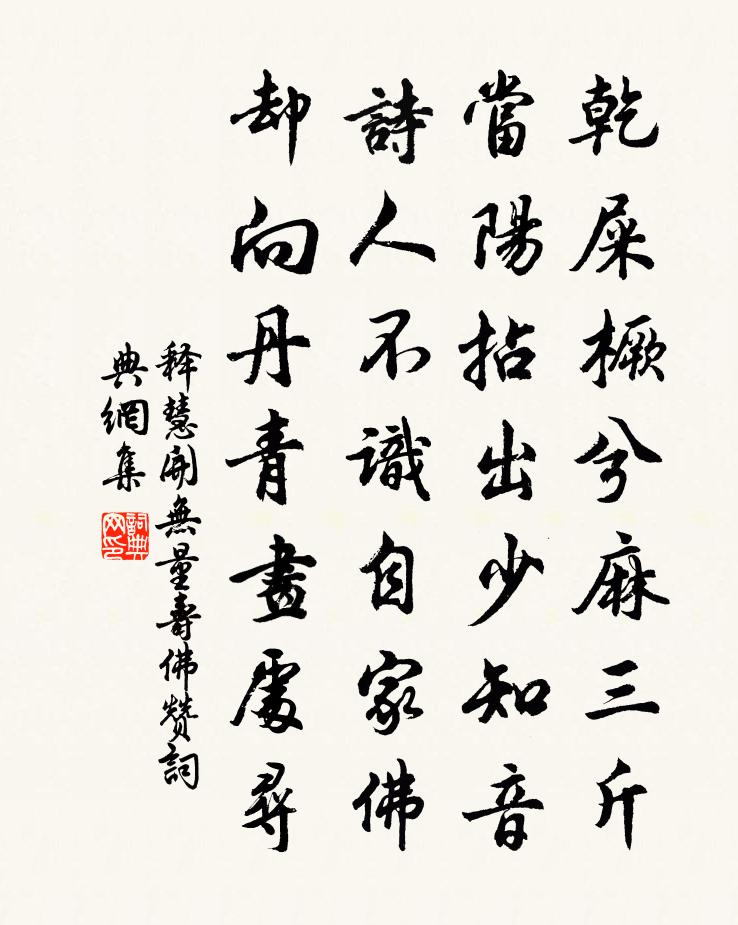 乾屎橛兮麻三斤
當陽拈出少知音
詩人不識自家佛
却向丹青畫處尋
釋慧開無量壽佛赞詞
典網集
詞典网印